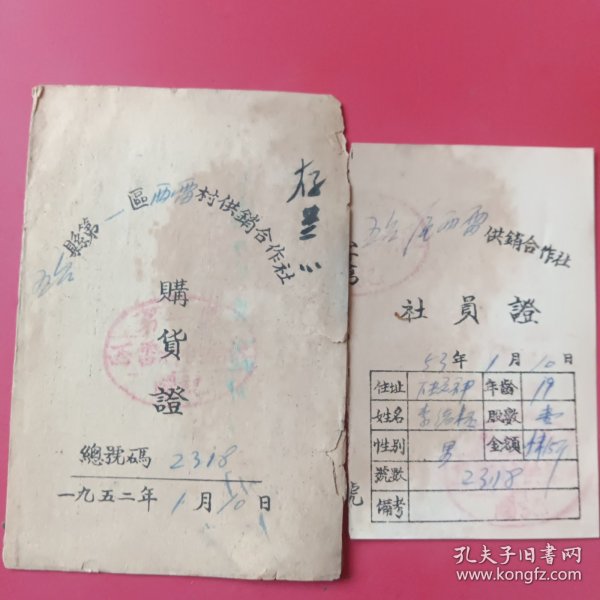 五台縣第一區西雷村供銷合作社
購貨證
總號碼 2318
一九五二年1月10日
五台 西雷供銷合作社
社員證
53年1月10日
住址
年齡 19
姓名 李
股數 壹
性別 男
金額
號數 2318
備考
號
孔夫子旧书网
www.kongfz.com